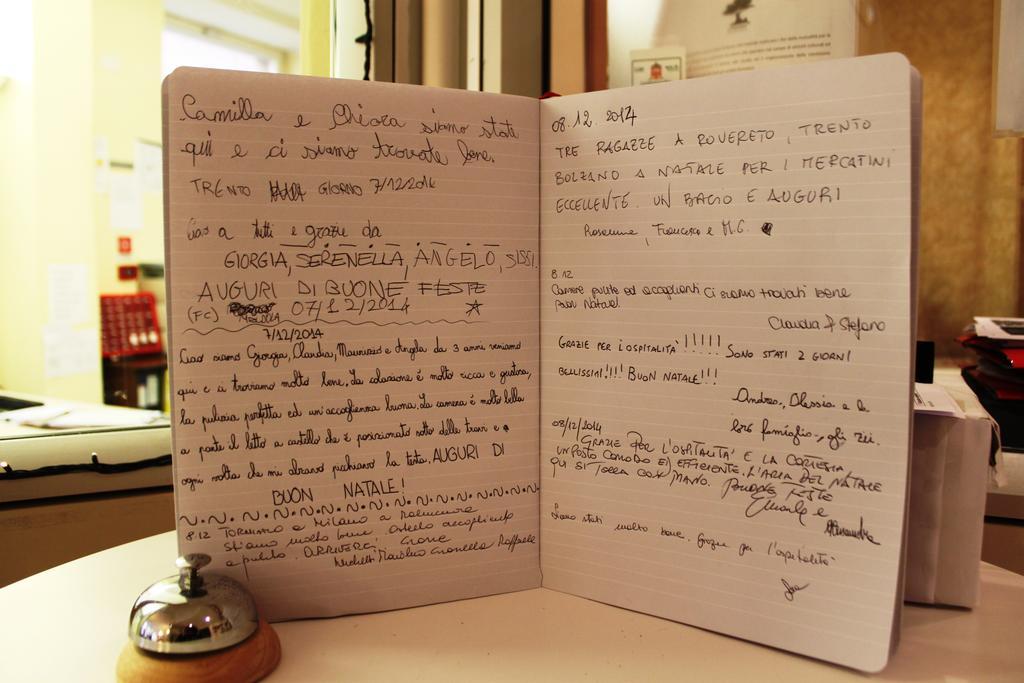 Camilla e Chiara siamo state
qui e ci siamo trovate bene.
TRENTO GIORNO 7/12/2014
Ciao a tutti e grazie da
GIORGIA, SERENELLA, ANGELO, SISSI.
AUGURI DI BUONE FESTE
(FC) 07/12/2014
7/12/2014
Ciao siamo Giorgia, Claudia, Maurizio e Angela da 3 anni veniamo
qui e ci troviamo molto bene. La colazione è molto ricca e gustosa,
la pulizia perfetta ed un'accoglienza buona. La camera è molto bella
a parte il letto a castello che è posizionato sotto delle travi e
ogni volta che mi alzavo picchiavo la testa. AUGURI DI
BUON NATALE!
8.12 TORNIAMO a Milano a
stiamo molto bene. Ostello accogliente
e pulito. ARRIVERCI. Grazie
Raffaele
08.12.2014
TRE RAGAZZE A ROVERETO, TRENTO
BOLZANO A NATALE PER I MERCATINI
ECCELLENTE. UN BACIO E AUGURI
Rosanna, Francesca e M.G.
8.12
Camere pulite ed accoglienti Ci siamo trovati bene
Buon Natale!
Claudia & Stefano
GRAZIE PER L'OSPITALITÀ !!!!!! SONO STATI 2 GIORNI
BELLISSIMI!!!! BUON NATALE!!!
Andrea, Alessia e la
loro famiglia, gli zii.
08/12/2014
GRAZIE PER L'OSPITALITÀ E LA CORTESIA!
UN POSTO COMODO ED EFFICIENTE. L'ARIA DEL NATALE
QUI SI TOCCA CON MANO. BUONE FESTE
e
Alessandra
Siamo stati molto bene. Grazie per l'ospitalità